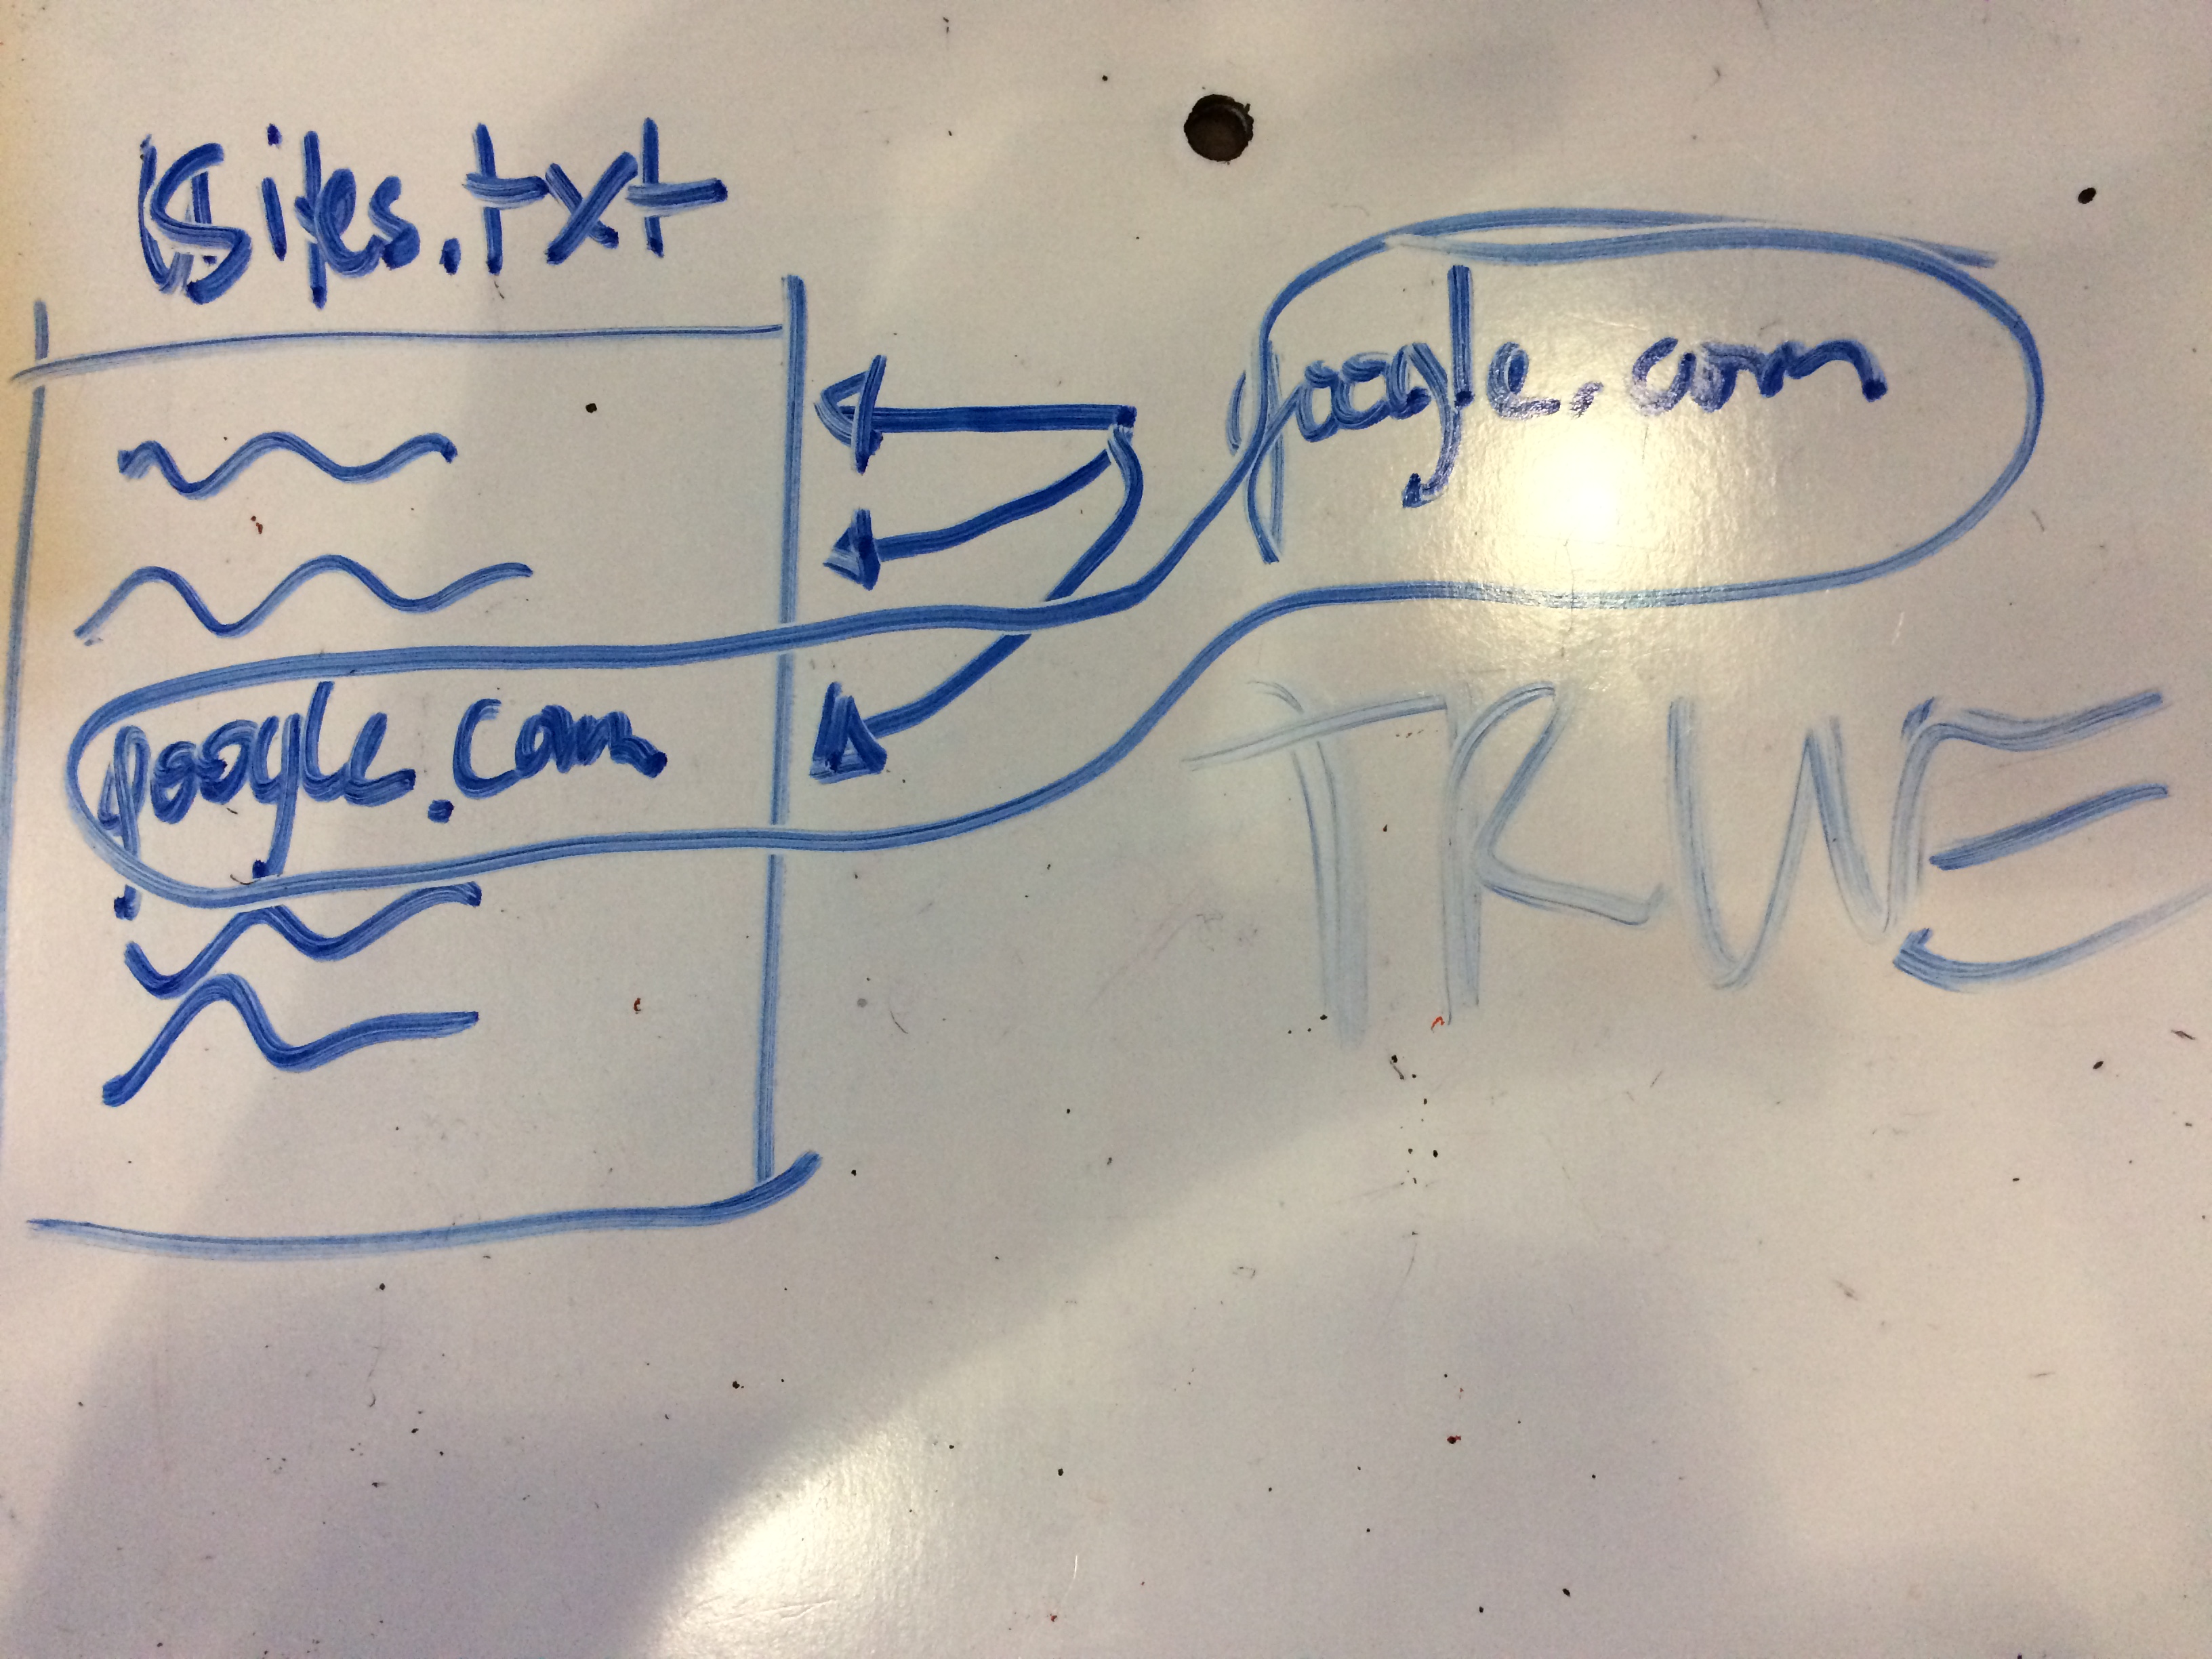 Sites.txt
google.com
google.com
TRUE